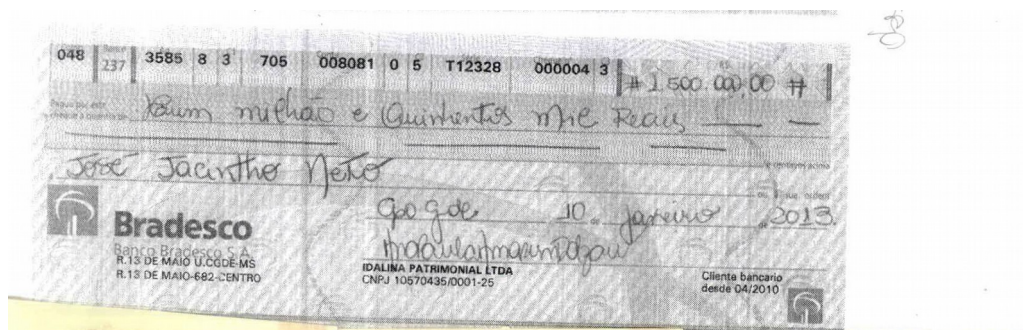 048 237 3585 8 3 705 008081 0 5 T12328 000004 3 # 1.500.000,00 #
Hum milhão e Quinhentos mil Reais
e centavos acima
José Jacintho Neto
ou à sua ordem
10 de janeiro de 2013
Bradesco
Banco Bradesco S.A.
R.13 DE MAIO U.CGDE-MS
R.13 DE MAIO-682-CENTRO
IDALINA PATRIMONIAL LTDA
CNPJ 10570435/0001-25
Cliente bancario
desde 04/2010